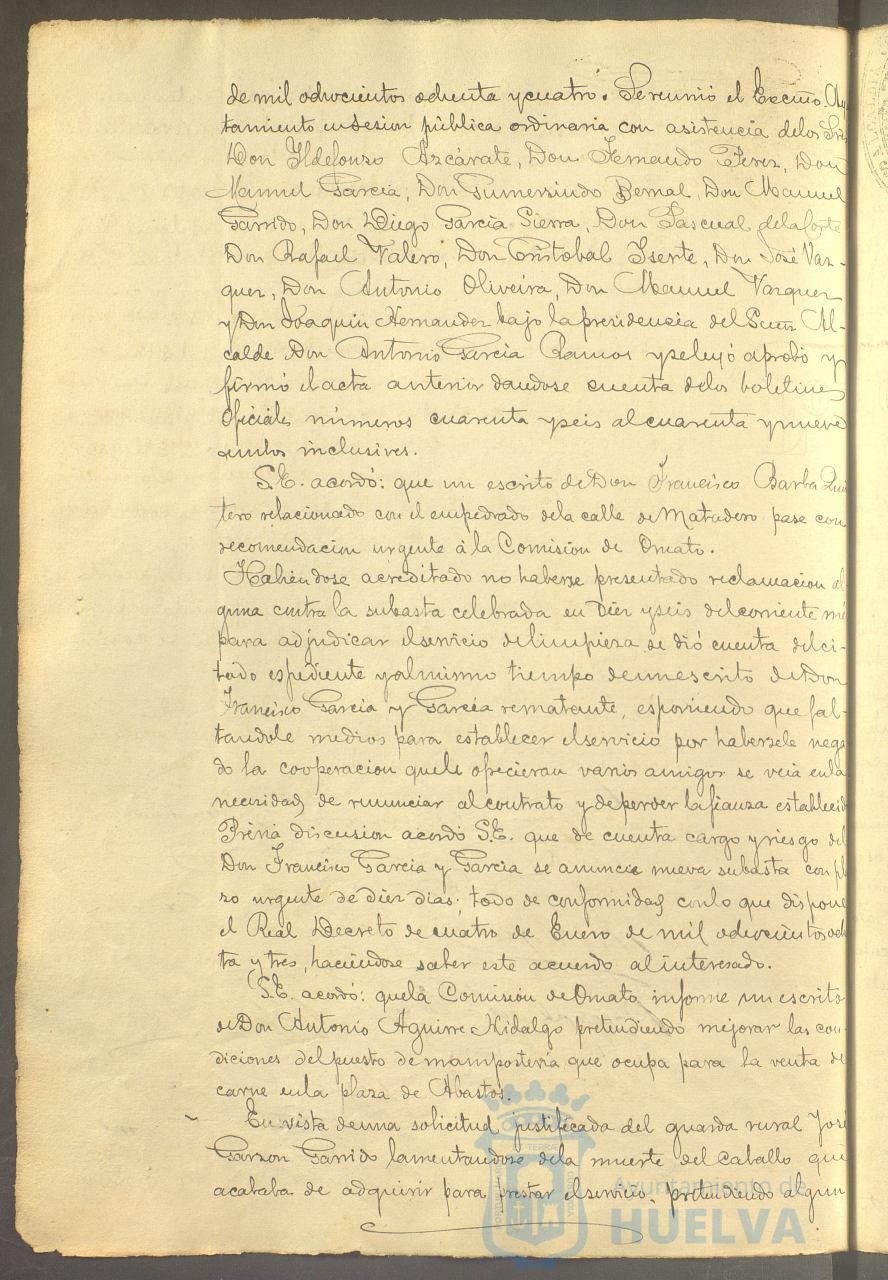 de mil ochocientos ochenta y cuatro. Se reunió el Excmo. Ay
tamiento en sesion pública ordinaria con asistencia de los Sres
Don Ildefonso Azcárate, Don Fernando Perez, Don
Manuel Garcia, Don Gumersindo Bernal, Don Manuel
Garrido, Don Diego Garcia Sierra, Don Pascual de la Corte
Don Rafael Valero, Don Cristobal Iserte, Don José Vaz-
quez, Don Antonio Oliveira, Don Manuel Vazquez
y Don Joaquin Hernandez bajo la presidencia del Señor Al-
calde Don Antonio Garcia Ramos y se leyó aprobó y
firmó el acta anterior dandose cuenta de los boletines
oficiales números cuarenta y seis al cuarenta y nueve
ambos inclusives.
S.E. acordó: que un escrito de Don Francisco Barba Quin
tero relacionado con el empedrado de la calle de Matadero pase con
recomendacion urgente á la Comision de Ornato.
Habiendose acreditado no haberse presentado reclamacion al-
guna contra la subasta celebrada en diez y seis del corriente mes
para adjudicar el servicio de limpieza se dió cuenta del ci-
tado espediente y al mismo tiempo de un escrito de Don
Francisco Garcia y Garcia rematante, esponiendo que fal-
tandole medios para establecer el servicio por habersele nega
do la cooperacion que le ofrecieran varios amigos se veia en la
necesidad de renunciar al contrato y de perder la fianza establecid
Prévia discusion acordó S.E. que de cuenta cargo y riesgo del
Don Francisco Garcia y Garcia se anuncie nueva subasta con pla
zo urgente de diez dias; todo de conformidad con lo que dispone
el Real Decreto de cuatro de Enero de mil ochocientos och
ta y tres, haciendose saber este acuerdo al interesado.
S.E. acordó: que la Comision de Ornato informe un escrito
de Don Antonio Aguirre Hidalgo pretendiendo mejorar las con-
diciones del puesto de mamposteria que ocupa para la venta de
carne en la plaza de Abastos.
En vista de una solicitud justificada del guarda rural José
Garzon Garrido lamentandose de la muerte del caballo que
acababa de adquirir para prestar el servicio, pretendiendo algun
Ayuntamiento de
HUELVA